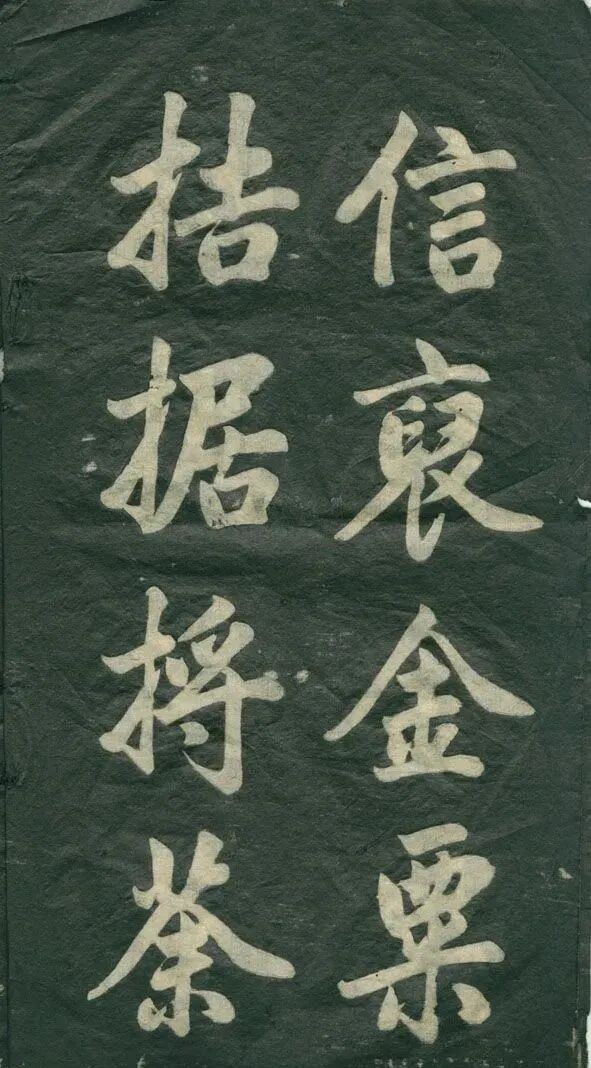 信裒金粟
拮据捋荼